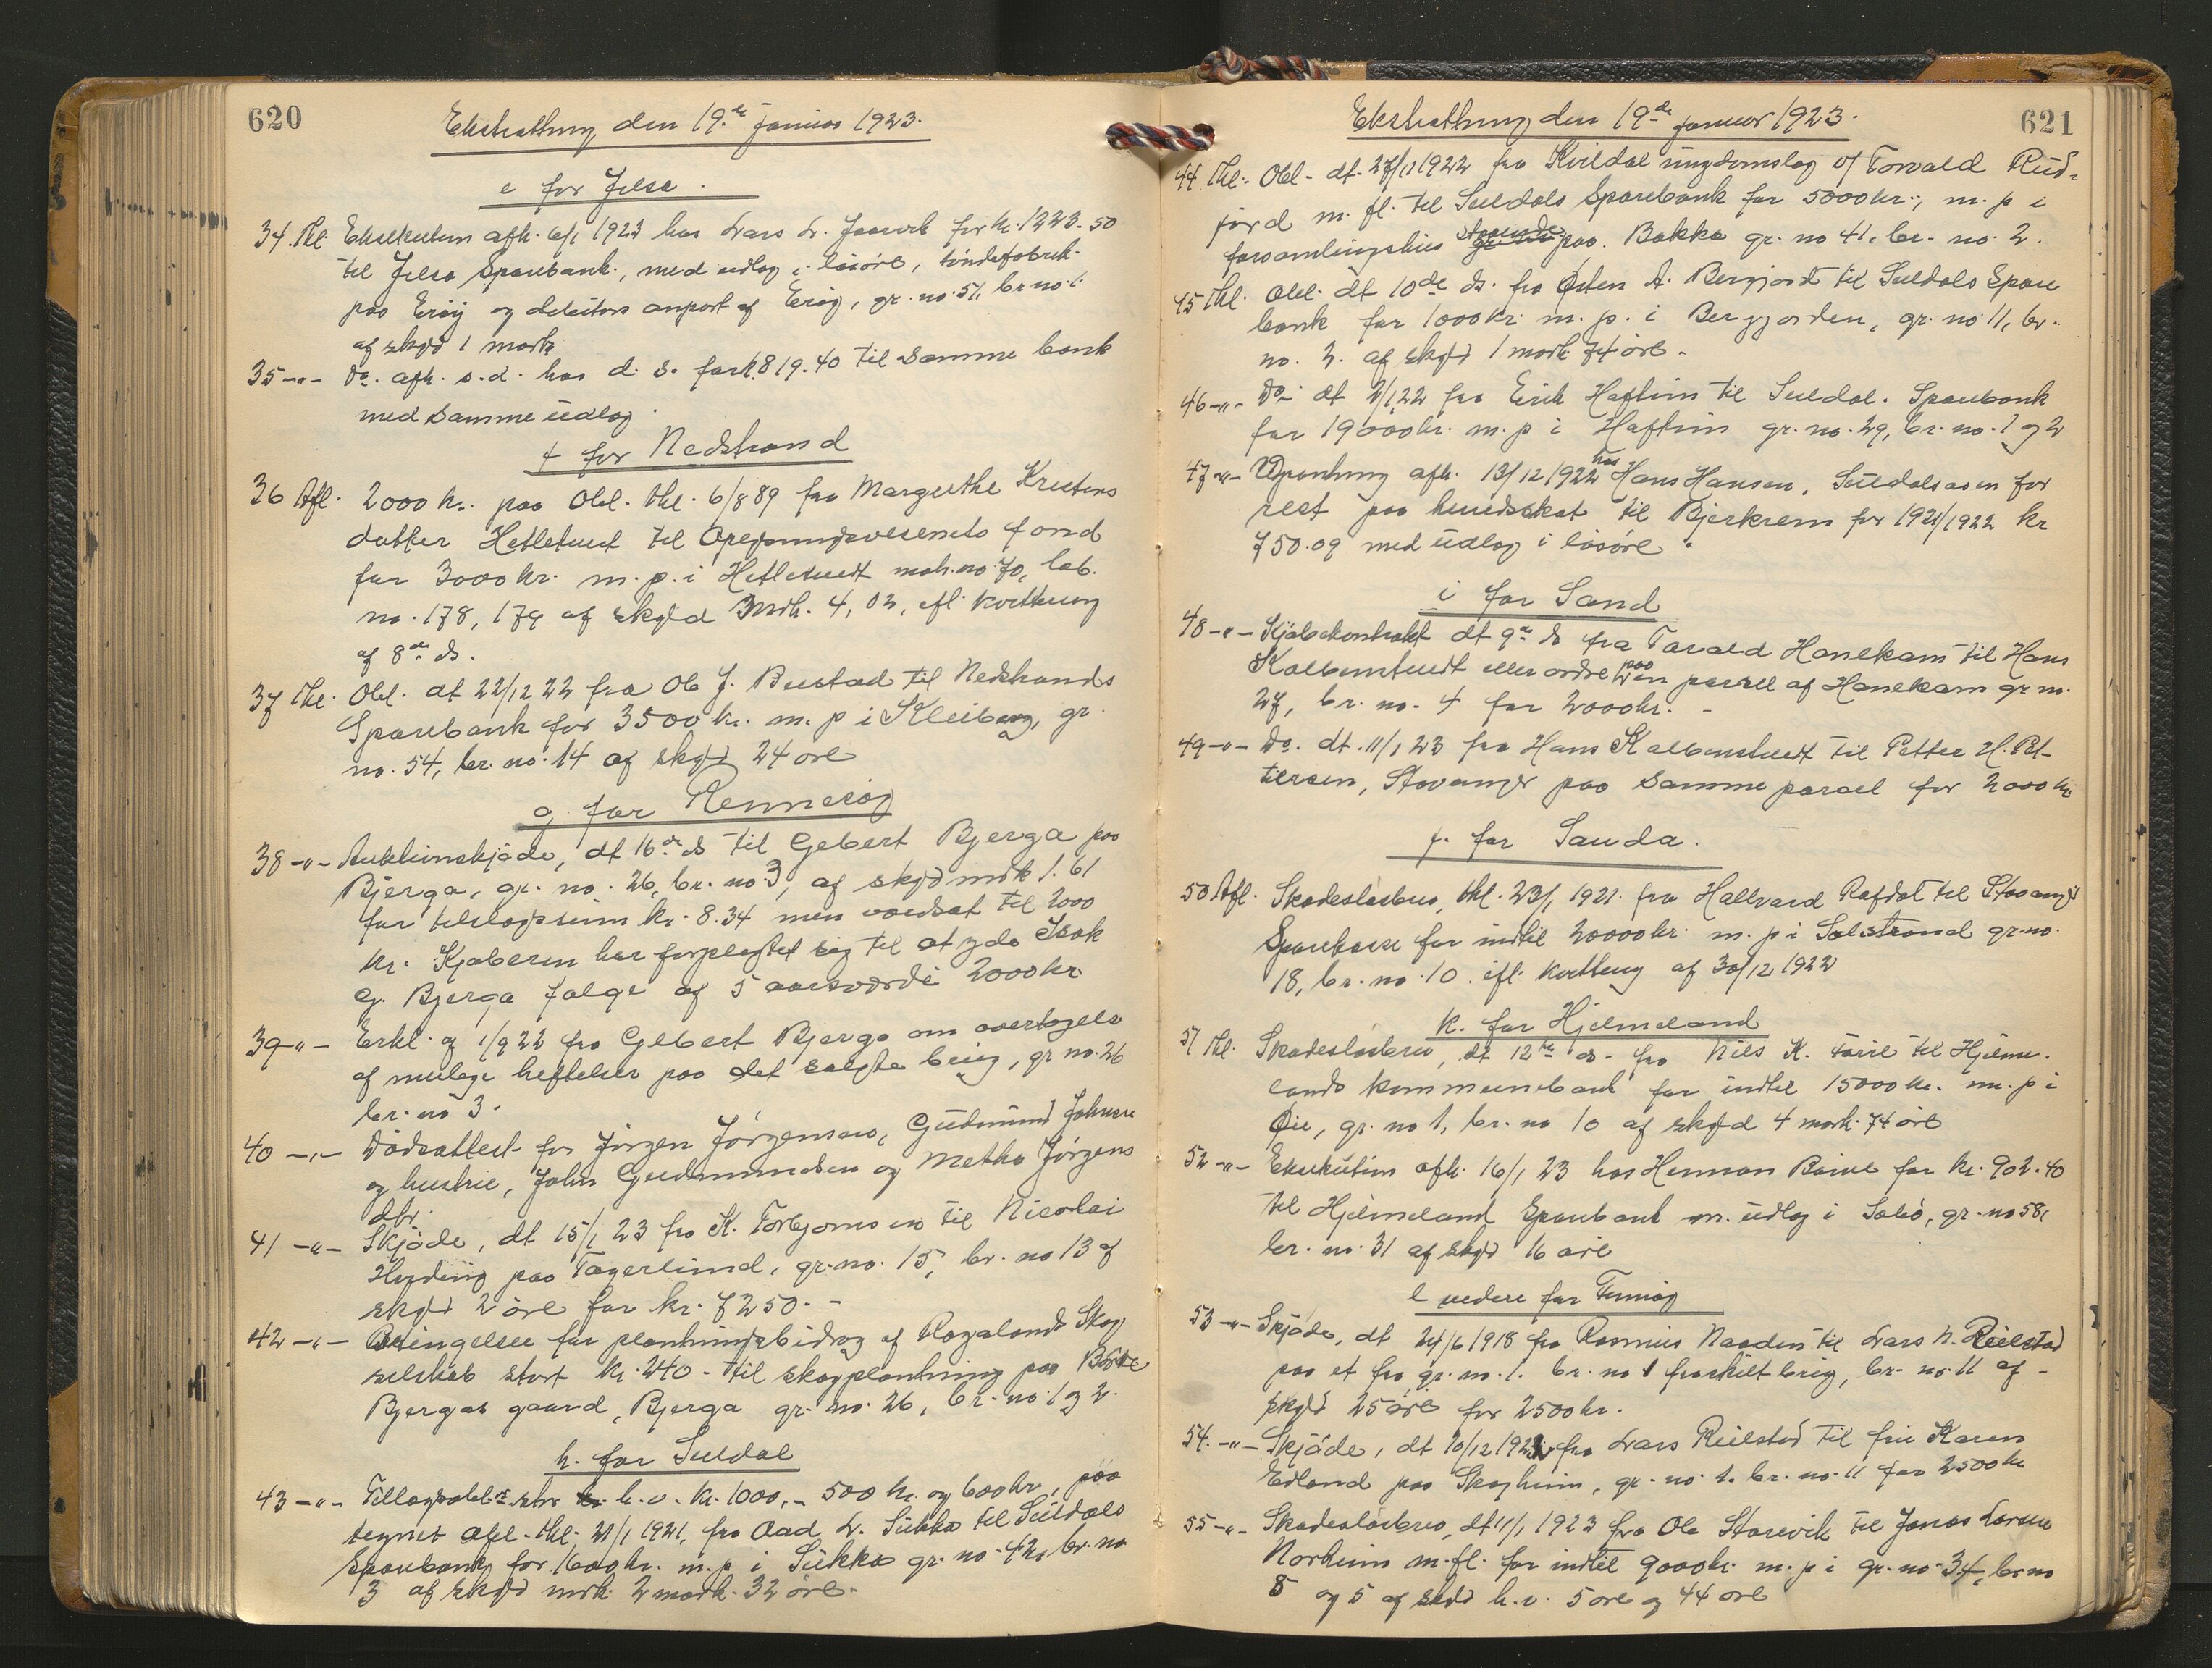 620
Ekstratting den 19.de januar 1923.
e for Jelsa.
34. Thl. Eksekution afh. 6/1 1923 hos Lars L. Jaarvik for kr. 1223.50
til Jelsa Sparebank, med udlæg i løsøre, tøndefabrik
paa Erøy og debitors anpart af Erøy, gr. no. 51, br no. 1
af skyld 1 mark
35 -"- Do. afh. s.d. hos d. s. for kr. 819.40 til samme bank
med samme udlæg.
f for Nedstrand
36 Afl. 2000 kr. paa Obl. thl. 6/8 89 fra Margrethe Kristens
datter Hetletvedt til Oplysningsvesenets fond
for 3000 kr. m. p. i Hetletvedt matr. no 70, løb.
no. 178, 179 af skyld 3 mrk. 4,02, efl. kvittering
af 8de ds.
37 Thl. Obl. dt 22/12 22 fra Ole J. Bustad til Nedstrands
Sparebank for 3500 kr. m. p i Kleiberg, gr.
no. 54, br. no. 14 af skyld 24 øre
g. for Rennesøy
38 -"- Auktionskjøde, dt 16de ds til Gebert Bjerga paa
Bjerga, gr. no. 26, br. no 3, af skyld mrk 1.61
for tilslagssum kr. 8.34 men værdsat til 2000
kr. Kjøberen har forpligtet sig til at yde Isak
G. Bjerga følge af 5 aarsværdi 2000 kr
39 -"- Erkl. af 1/9 22 fra Gebert Bjerga om overtagelse
af mulige heftelser paa det solgte brug, gr no. 26
br. no 3.
40 -"- Dødsattest for Jørgen Jørgensen, Gudmund Johnsen
og hustru, John Gudmundsen og Metha Jørgens
dtr.
41 -"- Skjøde, dt 15/1 23 fra K. Torbjørnsen til Nicolai
Hyding paa Fagerlund, gr. no. 15, br. no 13 af
skyld 2 øre for kr. 7250.-
42 -"- Betingelser for plantningsbidrag af Rogalands Skog
selskab stort kr. 240.- til skogplantning paa Børte
Bjergas gaard, Bjerga gr. no. 26, br. no. 1 og 2.
h. for Suldal
43 -"- h. v. kr. 1000,- 500 kr. og 600 kr, paa
tegnet obl. thl. 21/1 1921, fra Aad L. Sukka til Suldals
Sparebank for 1600 kr. m. p i Sukka gr. no. 42, br. no
3 af skyld mrk. 2 mark 32 øre.
621
Ekstratting den 19de januar 1923.
44 Thl. Obl. dt. 27/11 1922 fra Kvildal ungdomslag v/ Torvald Rød-
jord m. fl. til Suldals Sparebank for 5000 kr., m. p i
forsamlingshus staaende paa Bakka gr. no 41, br. no. 2.
45 Thl. Obl. dt 10de ds. fra Østen A. Bergjord til Suldals Spare
bank for 1000 kr. m. p. i Bergjorden, gr. no 11, br.
no. 2. af skyld 1 mark 74 øre.
46 -"- Do. dt 2/1 22 fra Erik Haftun til Suldal. Sparebank
for 19000 kr. m. p i Haftun gr. no. 29, br. no. 1 og 2
47 -"- Udpantning afh. 13/12 1922 hos Hans Hansen, Suldalsosen for
rest paa hundeskat til Bjerkrem for 1921/1922 kr
750.09 med udlæg i løsøre.
i for Sand
48 -"- Kjøbekontrakt dt 9de ds fra Tarald Hanekam til Hans
Kolbenstvedt eller ordre paa en parsel af Hanekam gr no.
27, br. no. 4 for 2000 kr. -
49 -"- Do. dt. 11/1 23 fra Hans Kolbenstvedt til Petter H. Pet-
tersen, Stavanger paa samme parsel for 2000 kr
j. for Sauda.
50 Afl. Skadesløsbrev, thl. 23/1 1921. fra Hallvard Rafdal til Stavanger
Sparekasse for indtil 20000 kr. m. p i Solstrand gr. no.
18, br. no. 10. efl. kvittering af 30/12 1922
k. for Hjelmeland
51 Thl. Skadesløsbrev, dt 12te ds. fra Nils K. til Hjelme-
lands kommunebank for indtil 15000 kr. m. p i
Øie, gr. no 1, br. no 10 af skyld 4 mark 74 øre
52 -"- Eksekution afh. 16/1 23 hos Herman for kr. 902.40
til Hjelmeland Sparebank m. udlæg i Sabø, gr. no 58,
br. no. 31 af skyld 16 øre
l videre for Finnøy
53 -"- Skjøde, dt 24/6 1918 fra Rasmus Naaden til Lars N. Reilstad
paa et fra gr. no. 1. br. no 1 fraskilt brug, br. no. 11 af -
skyld 25 øre for 2500 kr.
54. -"- Skjøde, dt 20/12 1922 fra Lars Reilstad til fru Karen
Edland paa Skogheim, gr. no. 1. br. no. 11 for 2500 kr
55 -"- Skadesløsbrev, dt 11/1 1923 fra Ole Storevik til Jonas Larsen
Norheim m. fl. for indtil 9000 kr. m. p i gr. no. 34, br no
8 og 5 af skyld h. v. 5 øre og 44 øre